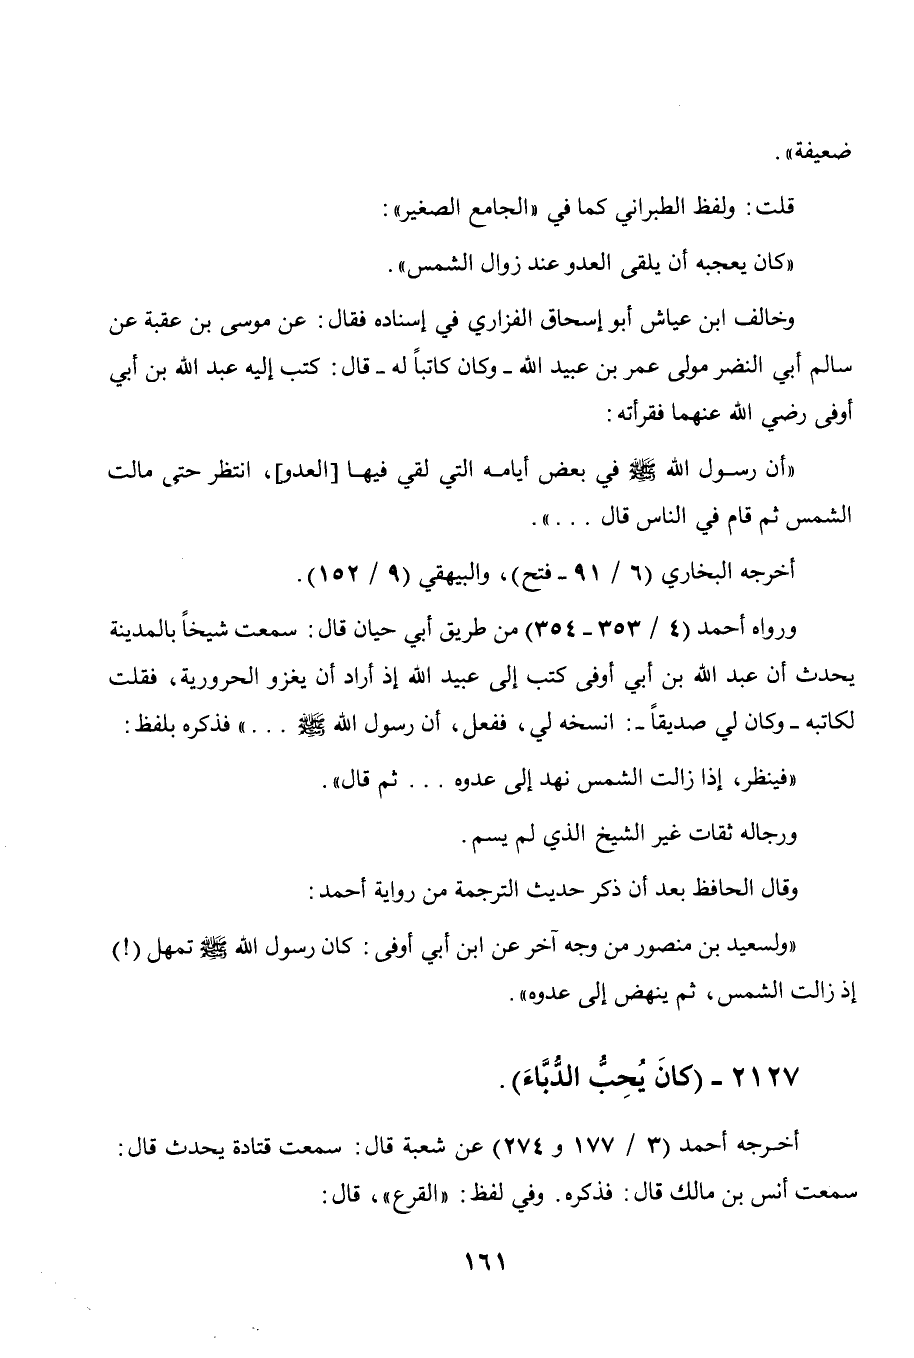 ضعيفة» .
قلت : ولفظ الطبراني كما في «الجامع الصغير» :
«كان يعجبه أن يلقى العدو عند زوال الشمس» .
وخالف ابن عياش أبو إسحاق الفزاري في إسناده فقال : عن موسى بن عقبة عن
سالم أبي النضر مولى عمر بن عبيد الله ـ وكان كاتباً له ـ قال : كتب إليه عبد الله بن أبي
أوفى رضي الله عنهما فقرأته :
«أن رسول الله ﷺ في بعض أيامه التي لقي فيها [العدو] ، انتظر حتى مالت
الشمس ثم قام في الناس قال . . .» .
أخرجه البخاري (٦ / ٩١ ـ فتح) ، والبيهقي (٩ / ١٥٢) .
ورواه أحمد (٤ / ٣٥٣ ـ ٣٥٤) من طريق أبي حيان قال : سمعت شيخاً بالمدينة
يحدث أن عبد الله بن أبي أوفى كتب إلى عبيد الله إذ أراد أن يغزو الحرورية ، فقلت
لكاتبه ـ وكان لي صديقاً ـ : انسخه لي ، ففعل ، أن رسول الله ﷺ . . .» فذكره بلفظ :
«فينظر ، إذا زالت الشمس نهد إلى عدوه . . . ثم قال» .
ورجاله ثقات غير الشيخ الذي لم يسم .
وقال الحافظ بعد أن ذكر حديث الترجمة من رواية أحمد :
«ولسعيد بن منصور من وجه آخر عن ابن أبي أوفى : كان رسول الله ﷺ تمهل (!)
إذ زالت الشمس ، ثم ينهض إلى عدوه» .
٢١٢٧ ـ (كانَ يُحِبُّ الدُّبَّاءَ) .
أخرجه أحمد (٣ / ١٧٧ و ٢٧٤) عن شعبة قال : سمعت قتادة يحدث قال :
سمعت أنس بن مالك قال : فذكره . وفي لفظ : «القرع» ، قال :
١٦١